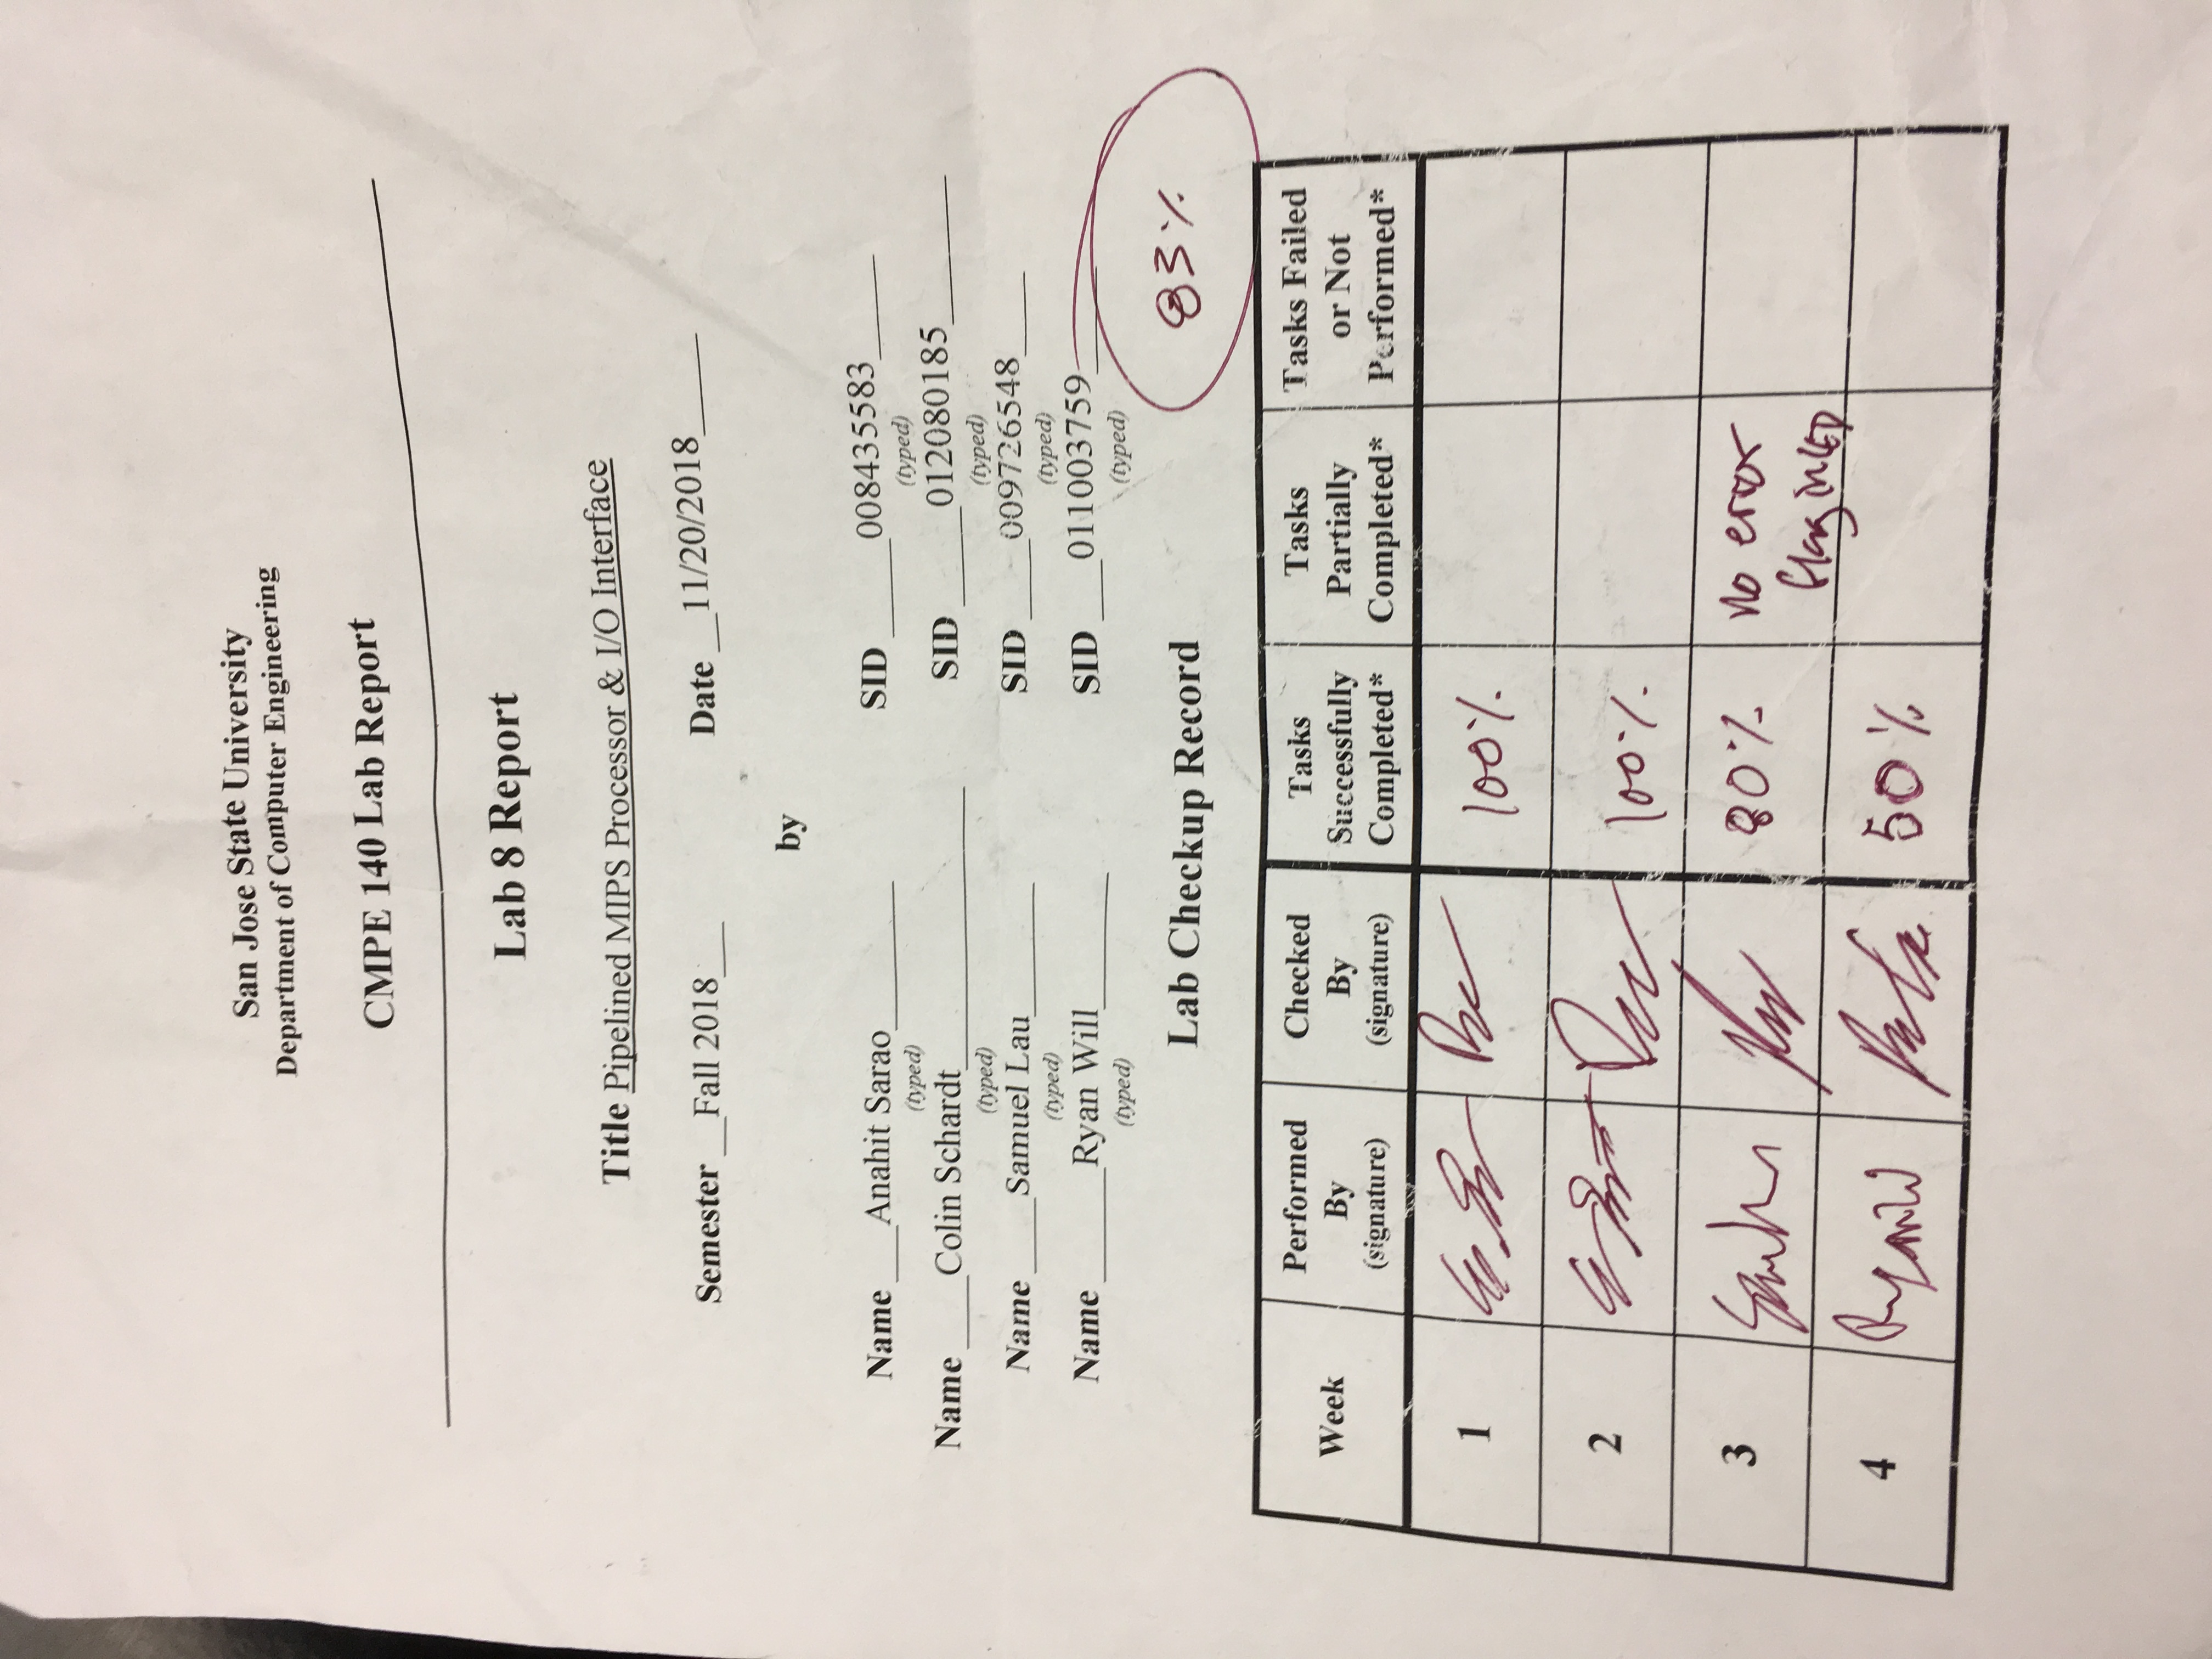 San Jose State University
Department of Computer Engineering
CMPE 140 Lab Report
Lab 8 Report
Title Pipelined MIPS Processor & I/O Interface
Semester __Fall 2018___ Date __11/20/2018_____
by
Name ___Anahit Sarao________ SID _____008435583_____
(typed) (typed)
Name ____Colin Schardt_______________ SID _____012080185_______
(typed) (typed)
Name ____Samuel Lau_______ SID ____009726548____
(typed) (typed)
Name ______Ryan Will_______ SID ___011003759_____
(typed) (typed)
83%
Lab Checkup Record
Week Performed By (signature) Checked By (signature) Tasks Successfully Completed* Tasks Partially Completed* Tasks Failed or Not Performed*
1 100%
2 100%
3 80% no error
flag in LED
4 50%